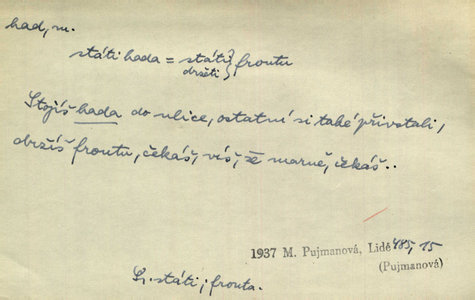 had, m.
státi hada = státi } frontu
držeti
Stojíš hada do ulice, ostatní si také přivstali,
držíš frontu, čekáš, víš, že marně, čekáš..
1937 M. Pujmanová, Lidé 485, 15
(Pujmanová)
státi; fronta.